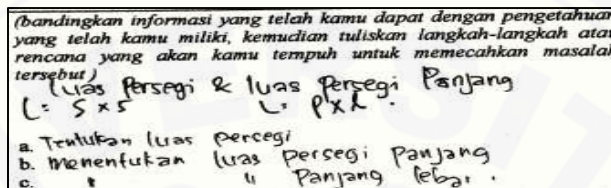 (bandingkan informasi yang telah kamu dapat dengan pengetahuan
yang telah kamu miliki, kemudian tuliskan langkah-langkah atau
rencana yang akan kamu tempuh untuk memecahkan masalah
tersebut)
luas Persegi & luas Persegi Panjang
L = S x S L = P x L.
a. Tentukan luas persegi
b. Menentukan luas persegi Panjang
c. " " Panjang lebar.